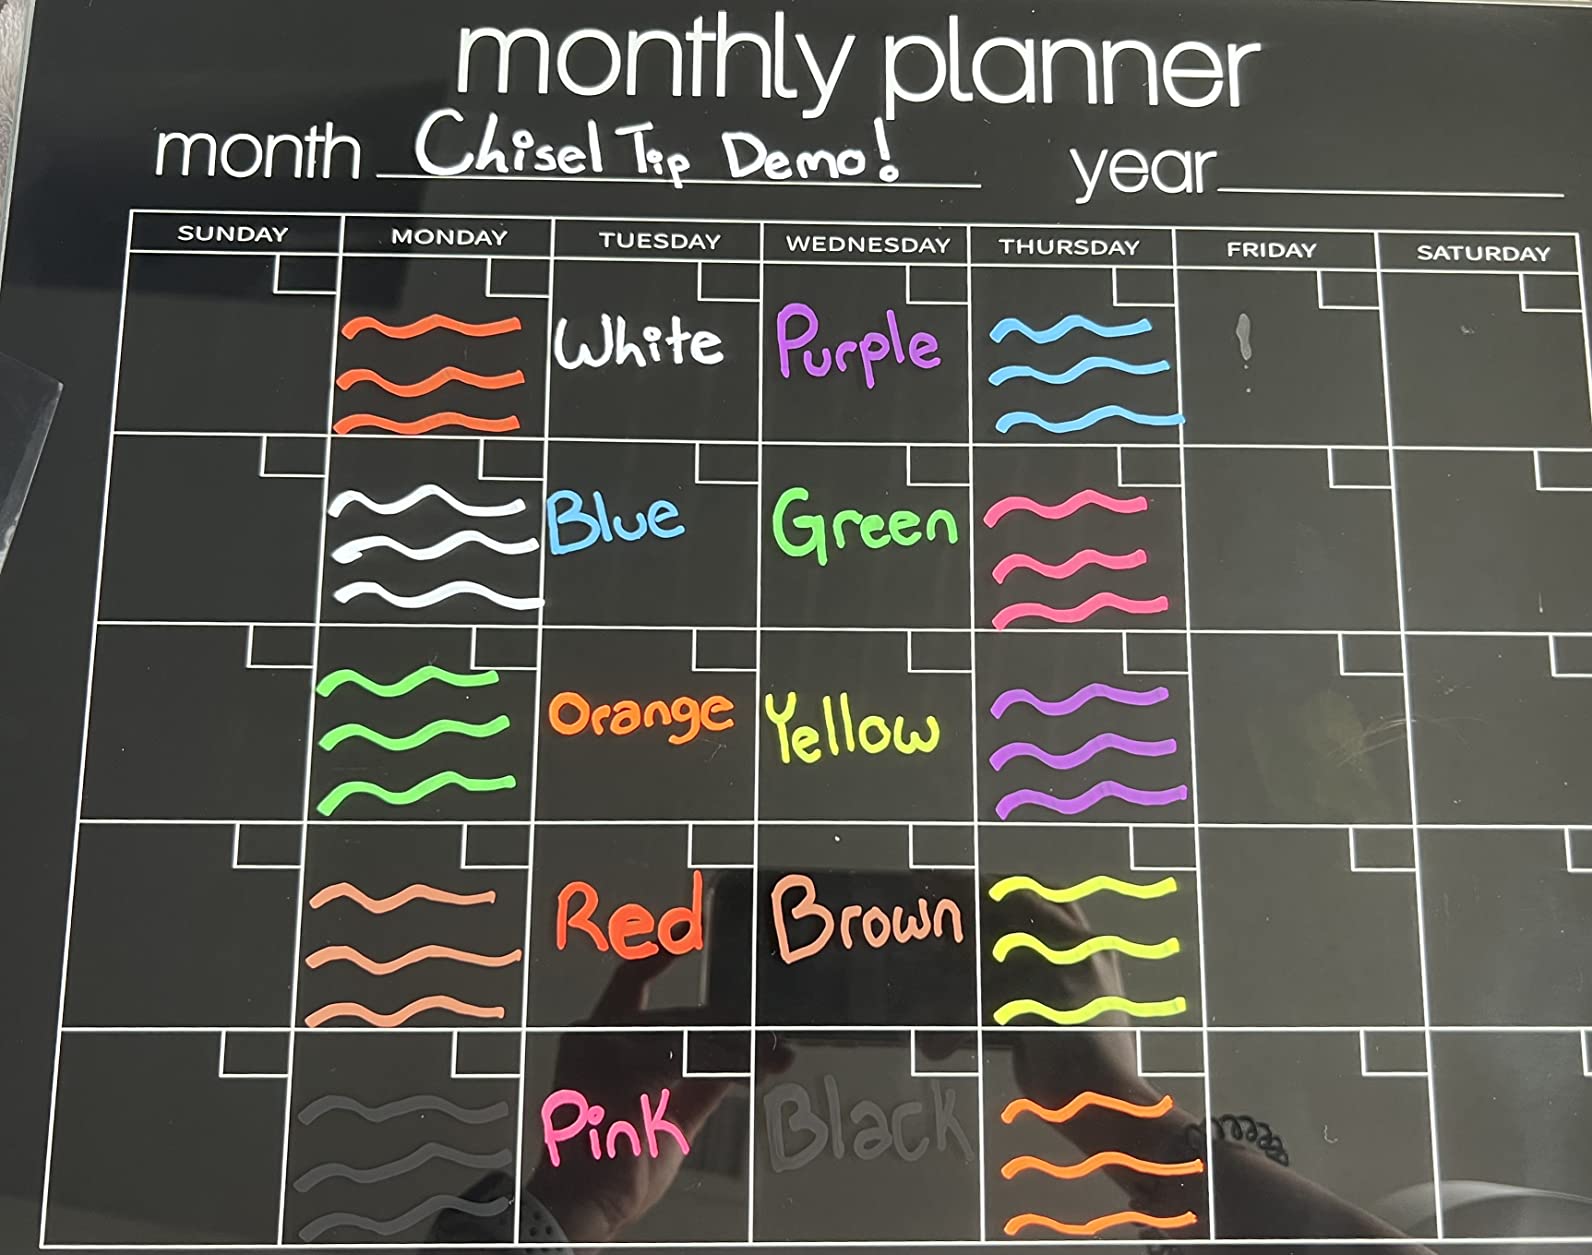 monthly planner
month Chisel Tip Demo! year
SUNDAY MONDAY TUESDAY WEDNESDAY THURSDAY FRIDAY SATURDAY
White Purple
Blue Green
Orange Yellow
Red Brown
Pink Black